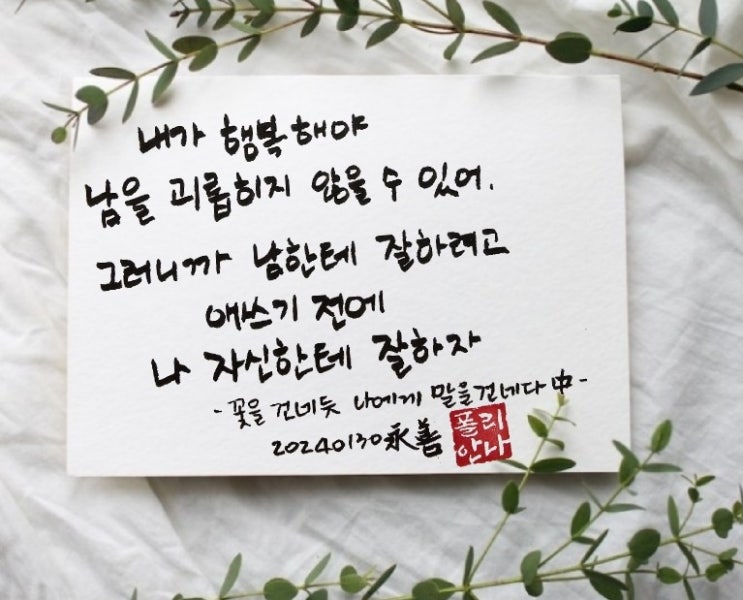 내가 행복해야
남을 괴롭히지 않을 수 있어.
그러니까 남한테 잘하려고
애쓰기 전에
나 자신한테 잘하자
- 꽃을 건네듯 나에게 말을 건네다 中 -
20240130 永善
폴리
안나